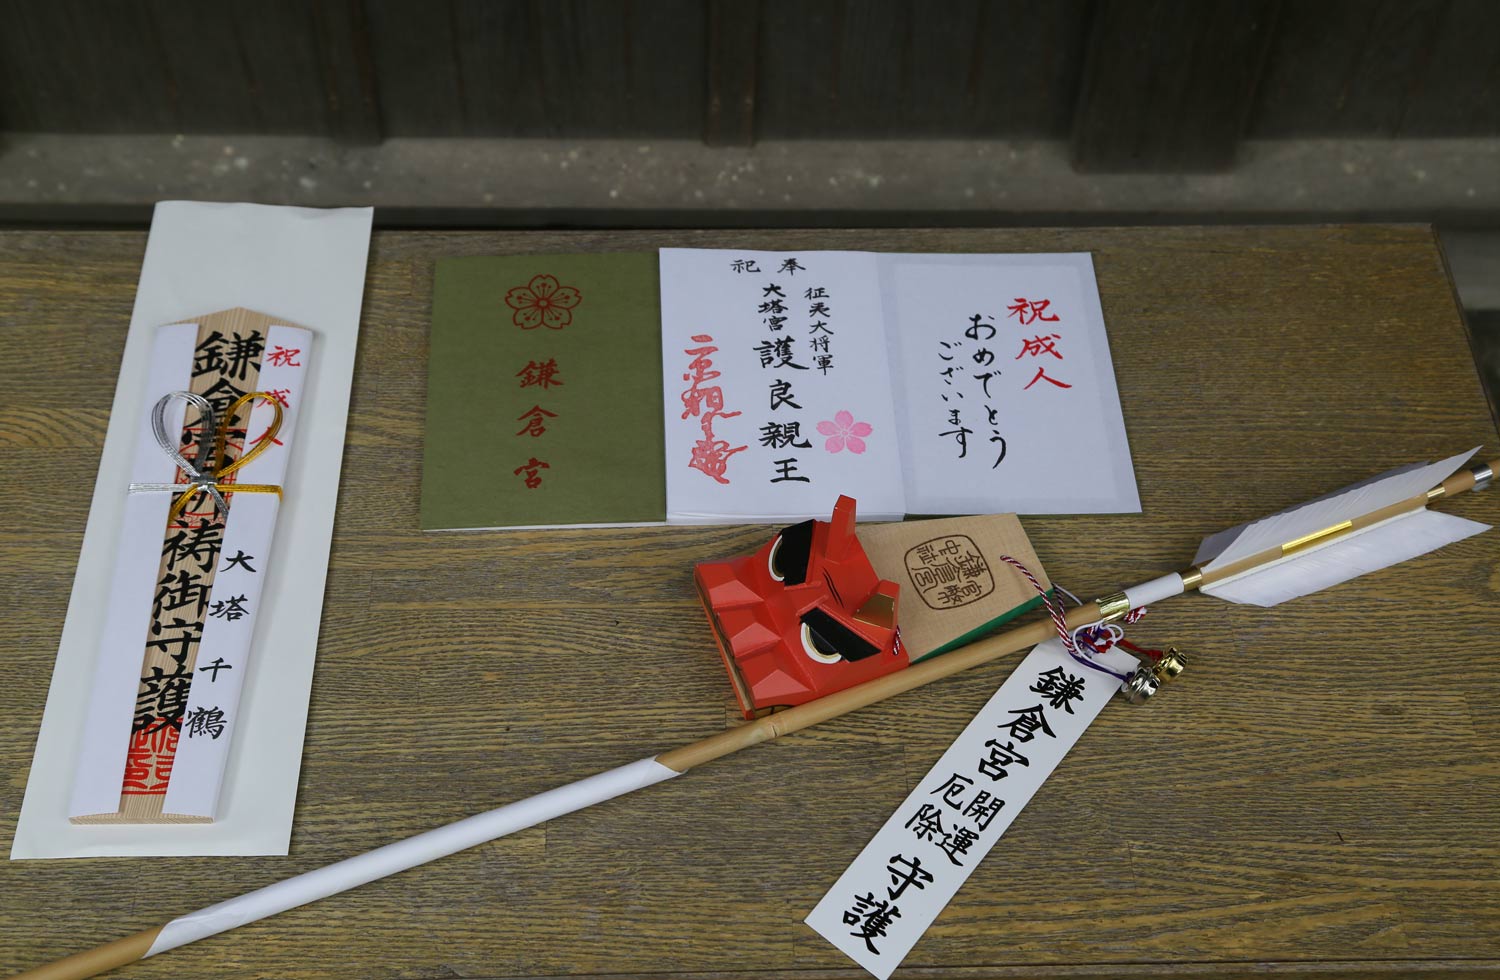 鎌倉宮祈祷御守護
祝成人
大塔千鶴
鎌倉宮
奉祀
征夷大将軍
大塔宮
護良親王
祝成人
おめでとう
ございます
鎌倉宮
開運
厄除
守護